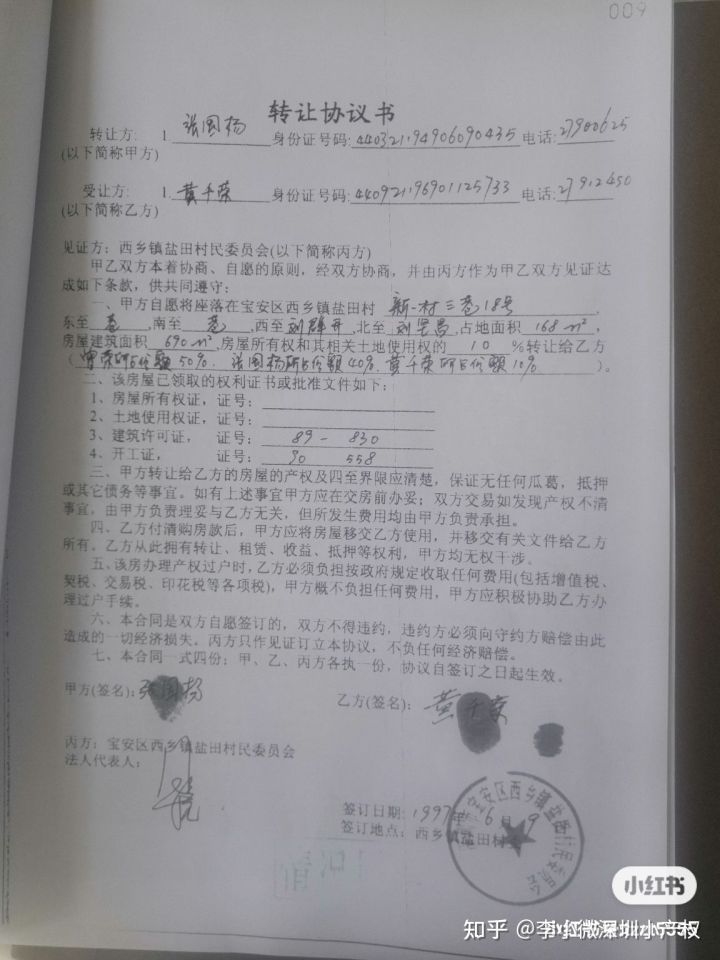 009
转让协议书
转让方: 1. 张国杨 身份证号码: 440321194906090435 电话: 27900625
(以下简称甲方)
受让方: 1. 黄千荣 身份证号码: 440921196901125733 电话: 27912450
(以下简称乙方)
见证方: 西乡镇盐田村民委员会(以下简称丙方)
甲乙双方本着协商、自愿的原则，经双方协商，并由丙方作为甲乙双方见证达
成如下条款，供共同遵守:
一、甲方自愿将座落在宝安区西乡镇盐田村 新一村三巷18号,
东至 巷 ,南至 巷 ,西至 刘群开 ,北至 ,占地面积 168m²,
房屋建筑面积 690m²,房屋所有权和其相关土地使用权的 10 %转让给乙方
( 荣所占份额50%. 张国杨所占份额40%. 黄千荣所占份额10% )。
二、该房屋已领取的权利证书或批准文件如下:
1、房屋所有权证，证号:
2、土地使用权证，证号:
3、建筑许可证， 证号: 89-830
4、开工证， 证号: 90 558
三、甲方转让给乙方的房屋的产权及四至界限应清楚，保证无任何瓜葛，抵押
或其它债务等事宜。如有上述事宜甲方应在交房前办妥；双方交易如发现产权不清
事宜，由甲方负责理妥与乙方无关，但所发生费用均由甲方负责承担。
四、乙方付清购房款后，甲方应将房屋移交乙方使用，并移交有关文件给乙方
所有。乙方从此拥有转让、租赁、收益、抵押等权利，甲方均无权干涉。
五、该房办理产权过户时,乙方必须负担按政府规定收取任何费用(包括增值税、
契税、交易税、印花税等各项税)，甲方概不负担任何费用，甲方应积极协助乙方办
理过户手续。
六、本合同是双方自愿签订的，双方不得违约，违约方必须向守约方赔偿由此
造成的一切经济损失。丙方只作见证订立本协议，不负任何经济赔偿。
七、本合同一式四份；甲、乙、丙方各执一份，协议自签订之日起生效。
甲方(签名): 张国杨 乙方(签名): 黄千荣
丙方: 宝安区西乡镇盐田村民委员会
法人代表人:
签订日期: 1997年 6月 9
签订地点: 西乡镇盐田村
宝安区西乡镇盐田村民委员会
小红书
知乎